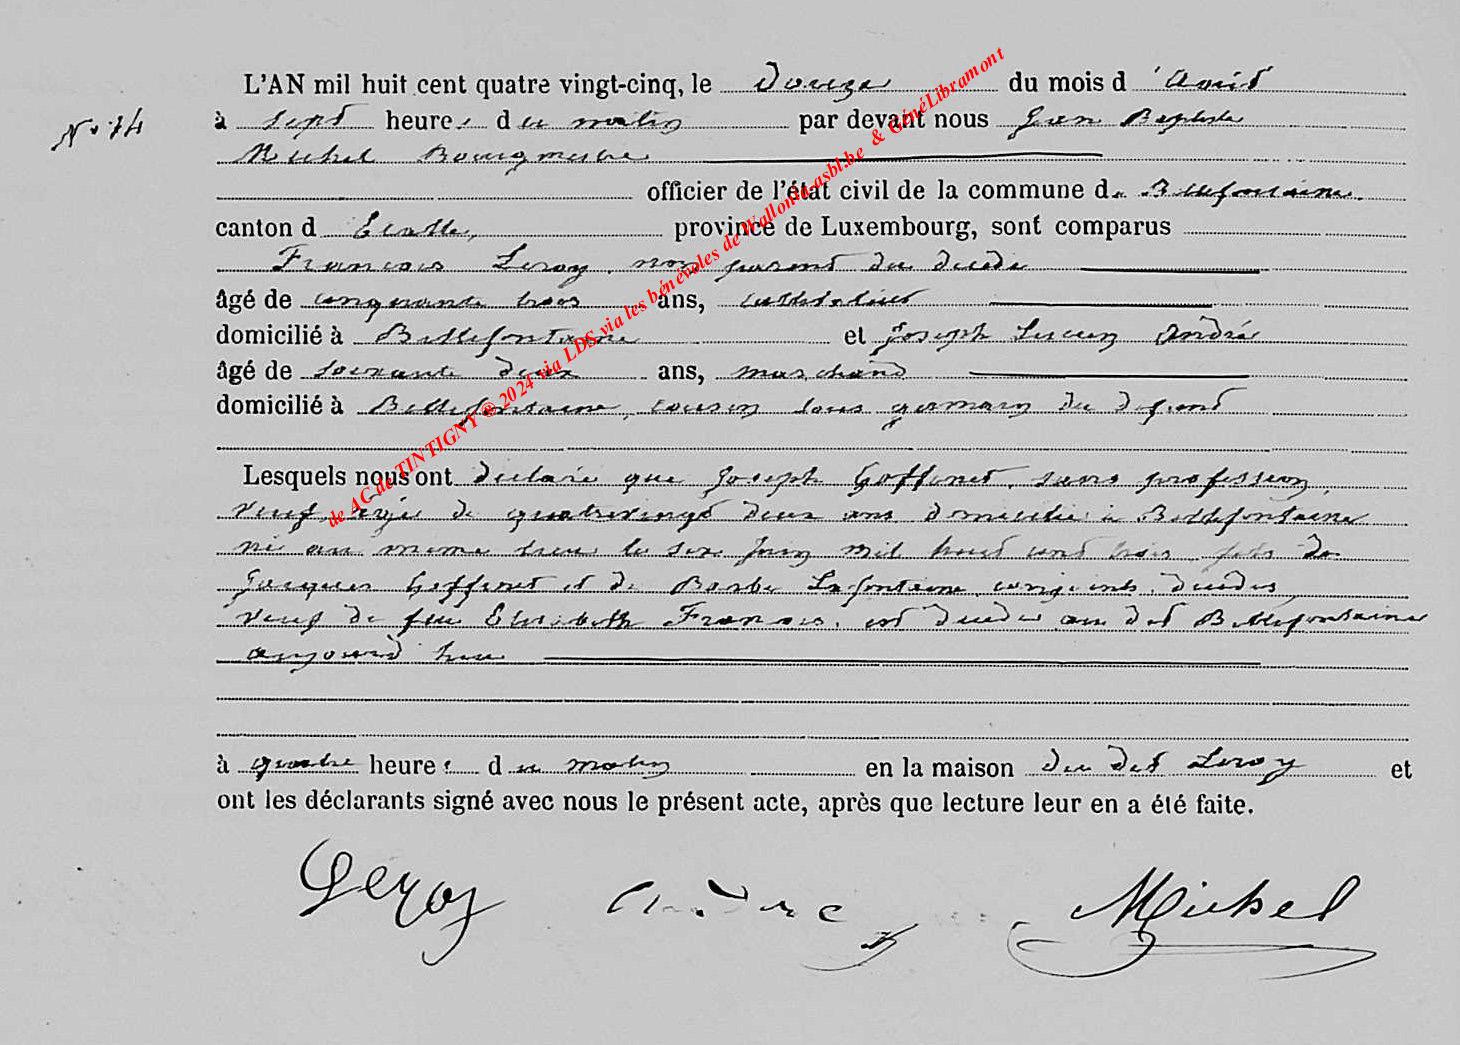 L'AN mil huit cent quatre vingt-cinq, le Douze du mois d'Août
N° 14
à sept heures du matin par devant nous Jean Baptiste
Michel Bourgmestre
officier de l'état civil de la commune de Bellefontaine
canton d'Etalle, province de Luxembourg, sont comparus
François Leroy, non parent du décédé
âgé de cinquante trois ans, cultivateur
domicilié à Bellefontaine et Joseph Lucien André
âgé de soixante deux ans, marchand
domicilié à Bellefontaine, cousin sous germain du defunt
Lesquels nous ont déclaré que Joseph Goffinet, sans profession,
veuf, âgé de quatrevingt deux ans domicilié à Bellefontaine
né au meme lieu le six juin mil huit cent trois, fils de
Jacques Goffinet et de Barbe Lafontaine conjoints décédés,
veuf de feue Elisabeth François, est décédé au dit Bellefontaine
aujourd'hui
à quatre heures du matin en la maison du dit Leroy et
ont les déclarants signé avec nous le présent acte, après que lecture leur en a été faite.
Leroy André Michel
de AC de TINTIGNY ® 2024 via LDS via les bénévoles de Wallonia-asbl.be & GénéLibramont